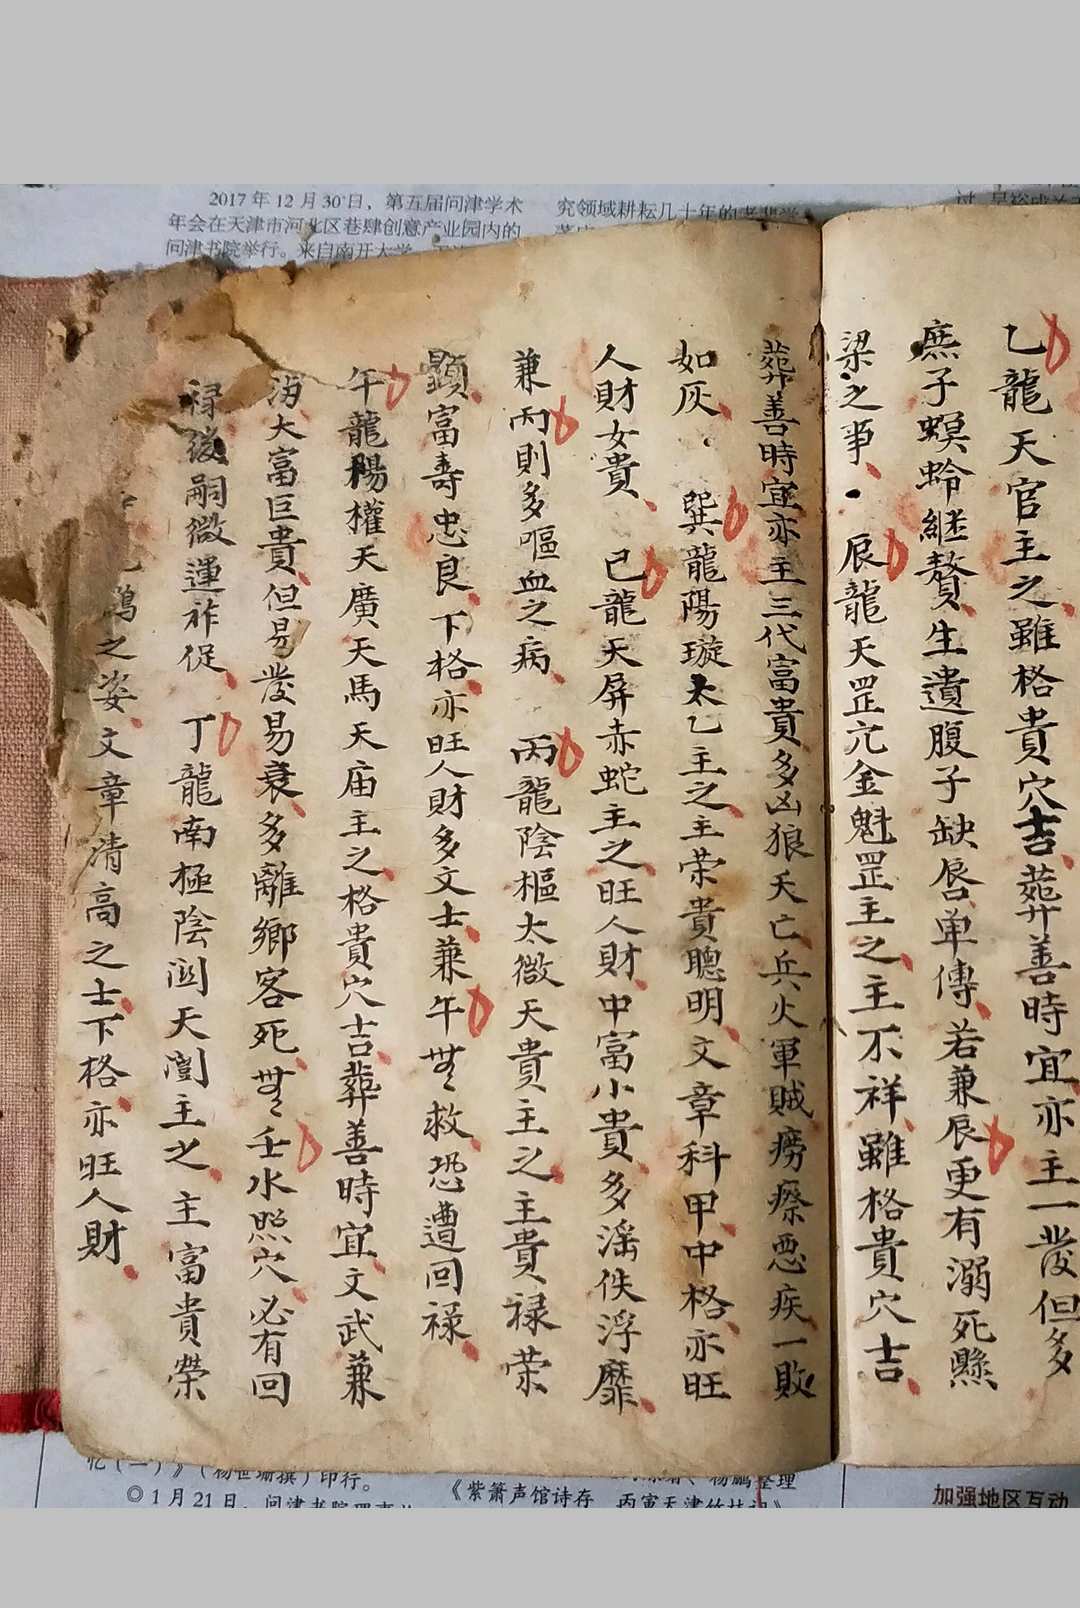 乙龍天官主之雖格貴穴吉葬善時宜亦主一發但多
庶子螟蛉繼贅生遺腹子缺唇单傳若兼辰更有溺死懸
梁之事辰龍天罡亢金魁罡主之主不祥雖格貴穴吉
葬善時宜亦主三代富貴多凶狼夭亡兵火軍賊癆瘵惡疾一敗
如灰巽龍陽璇太乙主之主荣貴聰明文章科甲中格亦旺
人財女貴巳龍天屏赤蛇主之旺人財中富小貴多滛佚浮靡
兼丙則多嘔血之病丙龍陰樞太微天貴主之主貴禄荣
顕富寿忠良下格亦旺人財多文士兼午无救恐遭回禄
午龍陽權天廣天馬天庙主之格貴穴吉葬善時宜文武兼
大富巨貴但易發易衰多離鄉客死無壬水照穴必有回
禄後嗣微運祚促丁龍南極陰闓天闓主之主富貴榮
之姿文章清高之士下格亦旺人財
2017年12月30日，第五届问津学术
年会在天津市河北区巷肆创意产业园内的
问津书院举行。来自南开大学
究领域耕耘几十年的老
忆（二）》（杨世珊撰）印行。
◎1月21日，问津书院
《紫箫声馆诗存
杨鹏整理
丙寅天津竹枝词》
加强地区互动